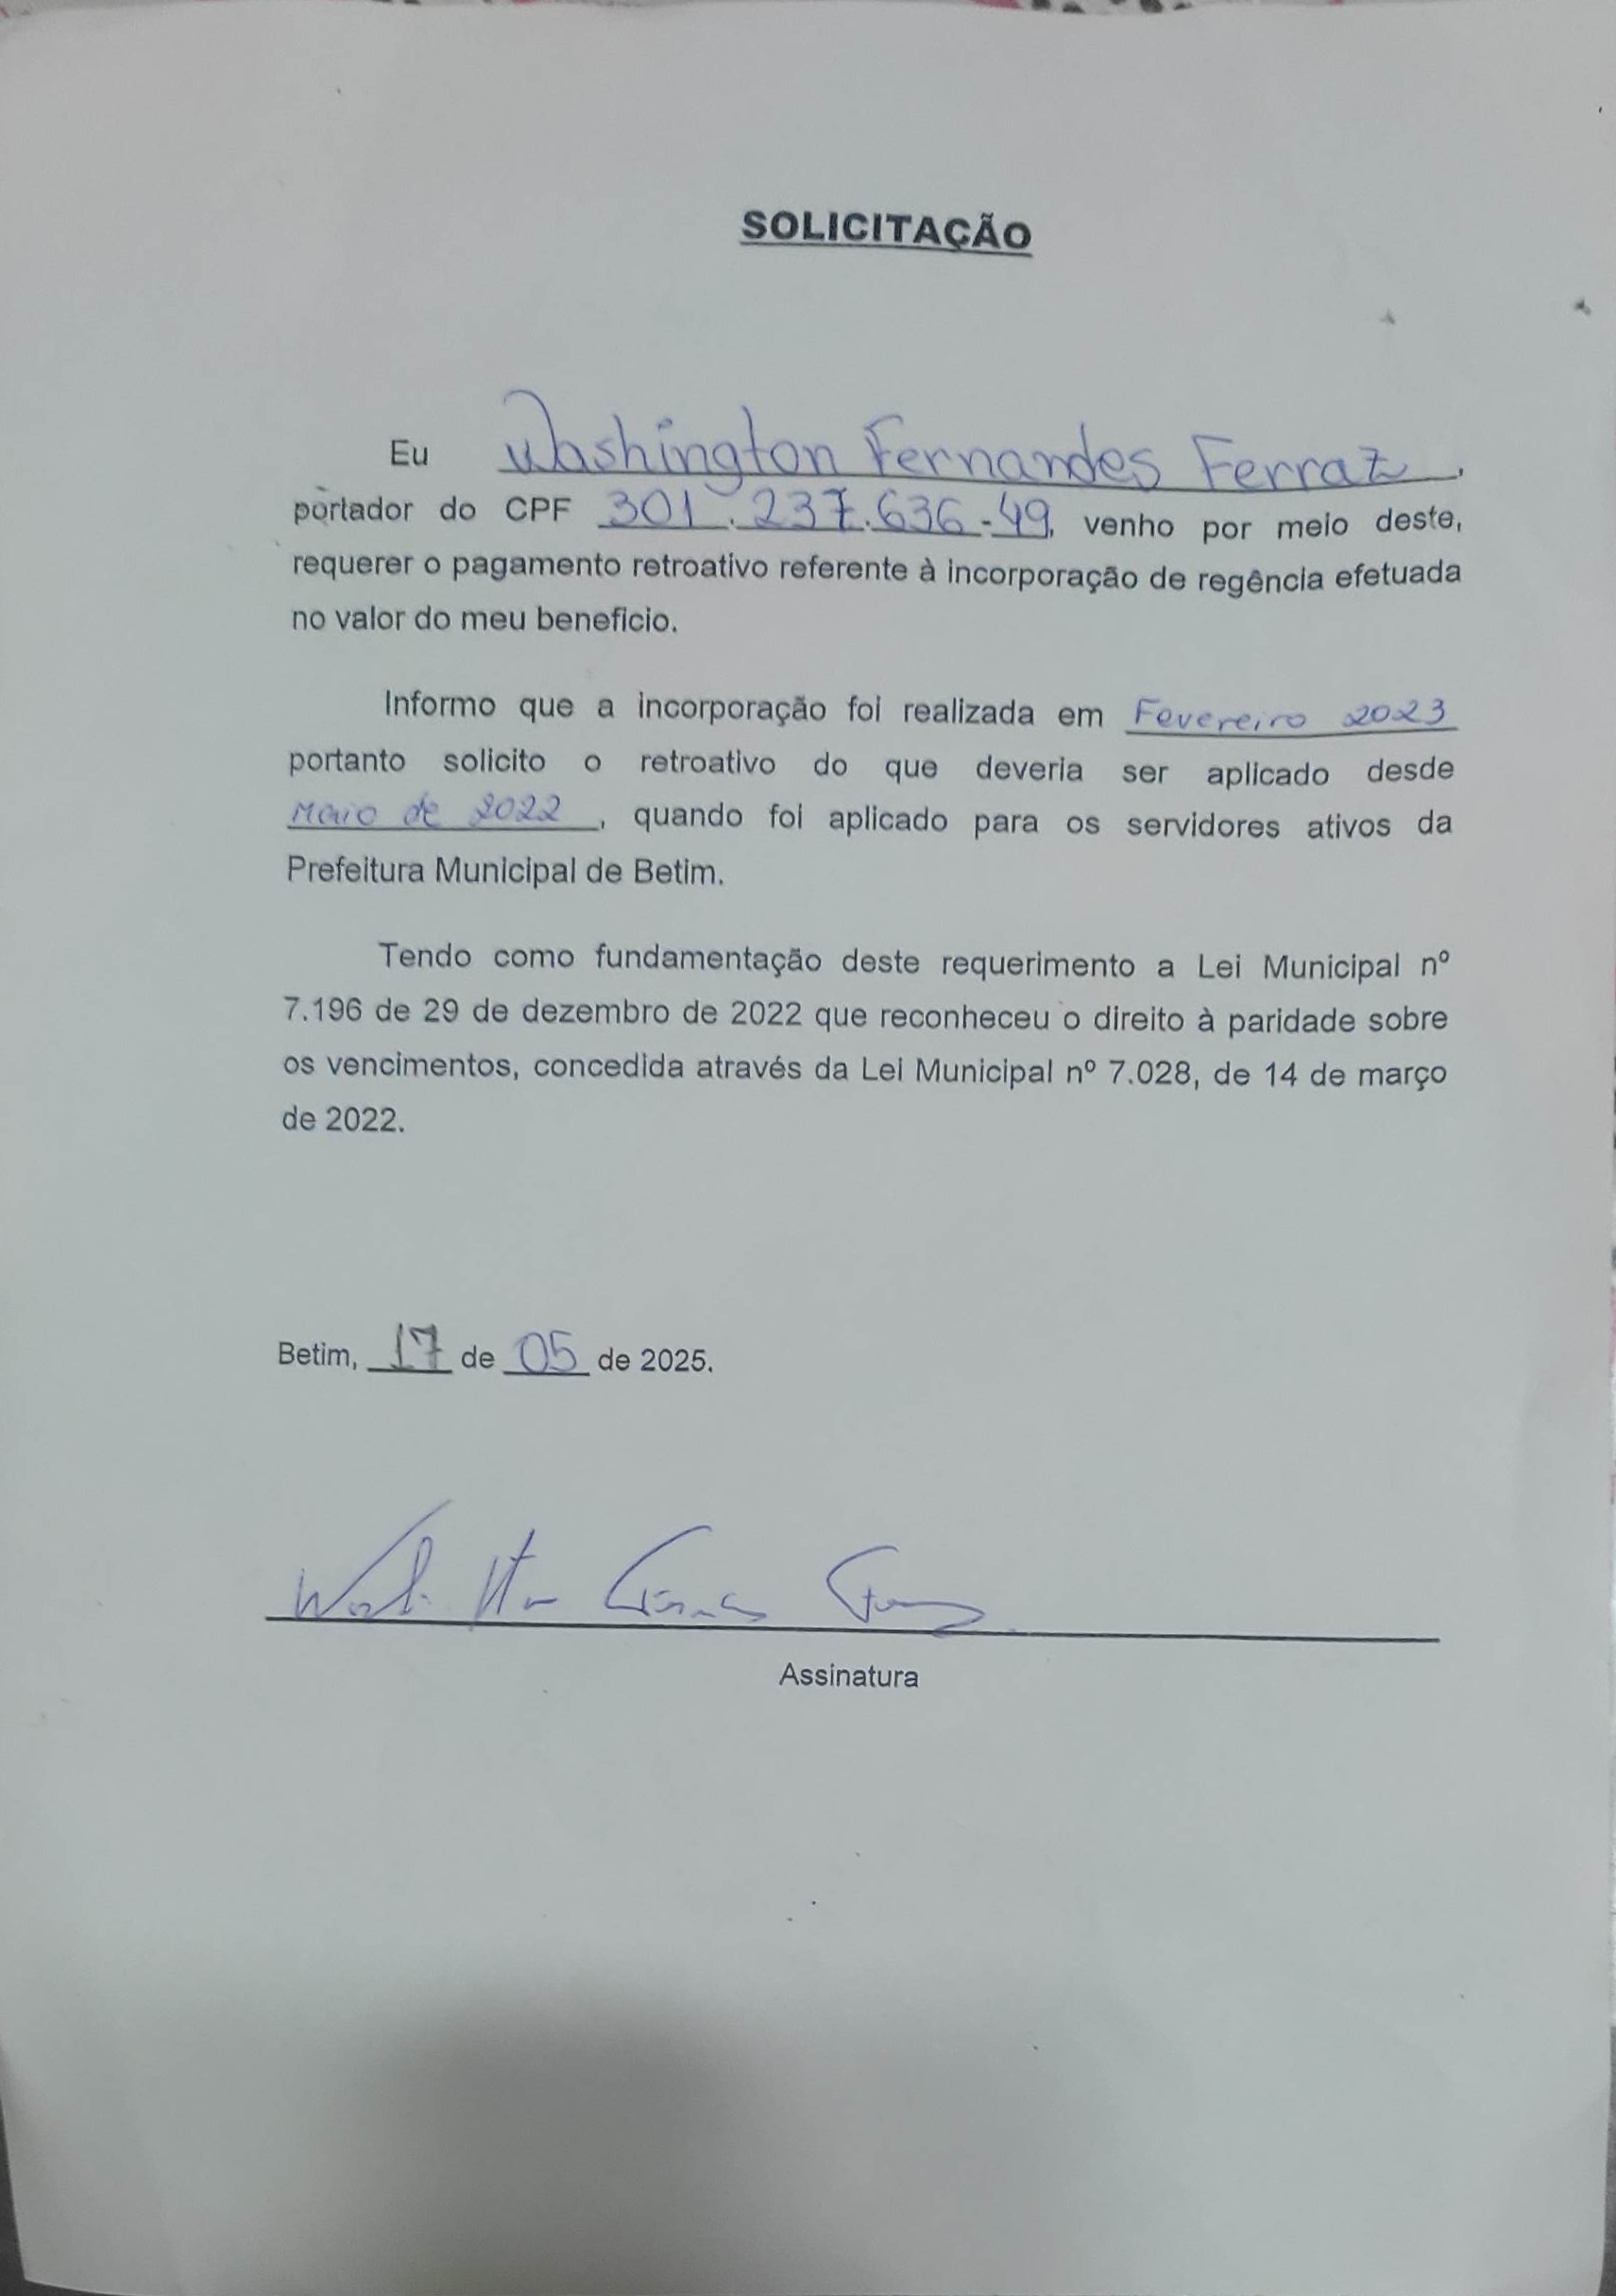 SOLICITAÇÃO
Eu Washington Fernandes Ferraz,
portador do CPF 301.237.636-49, venho por meio deste,
requerer o pagamento retroativo referente à incorporação de regência efetuada
no valor do meu beneficio.
Informo que a incorporação foi realizada em Fevereiro 2023
portanto solicito o retroativo do que deveria ser aplicado desde
Maio de 2022, quando foi aplicado para os servidores ativos da
Prefeitura Municipal de Betim.
Tendo como fundamentação deste requerimento a Lei Municipal nº
7.196 de 29 de dezembro de 2022 que reconheceu o direito à paridade sobre
os vencimentos, concedida através da Lei Municipal nº 7.028, de 14 de março
de 2022.
Betim, 17 de 05 de 2025.
Assinatura